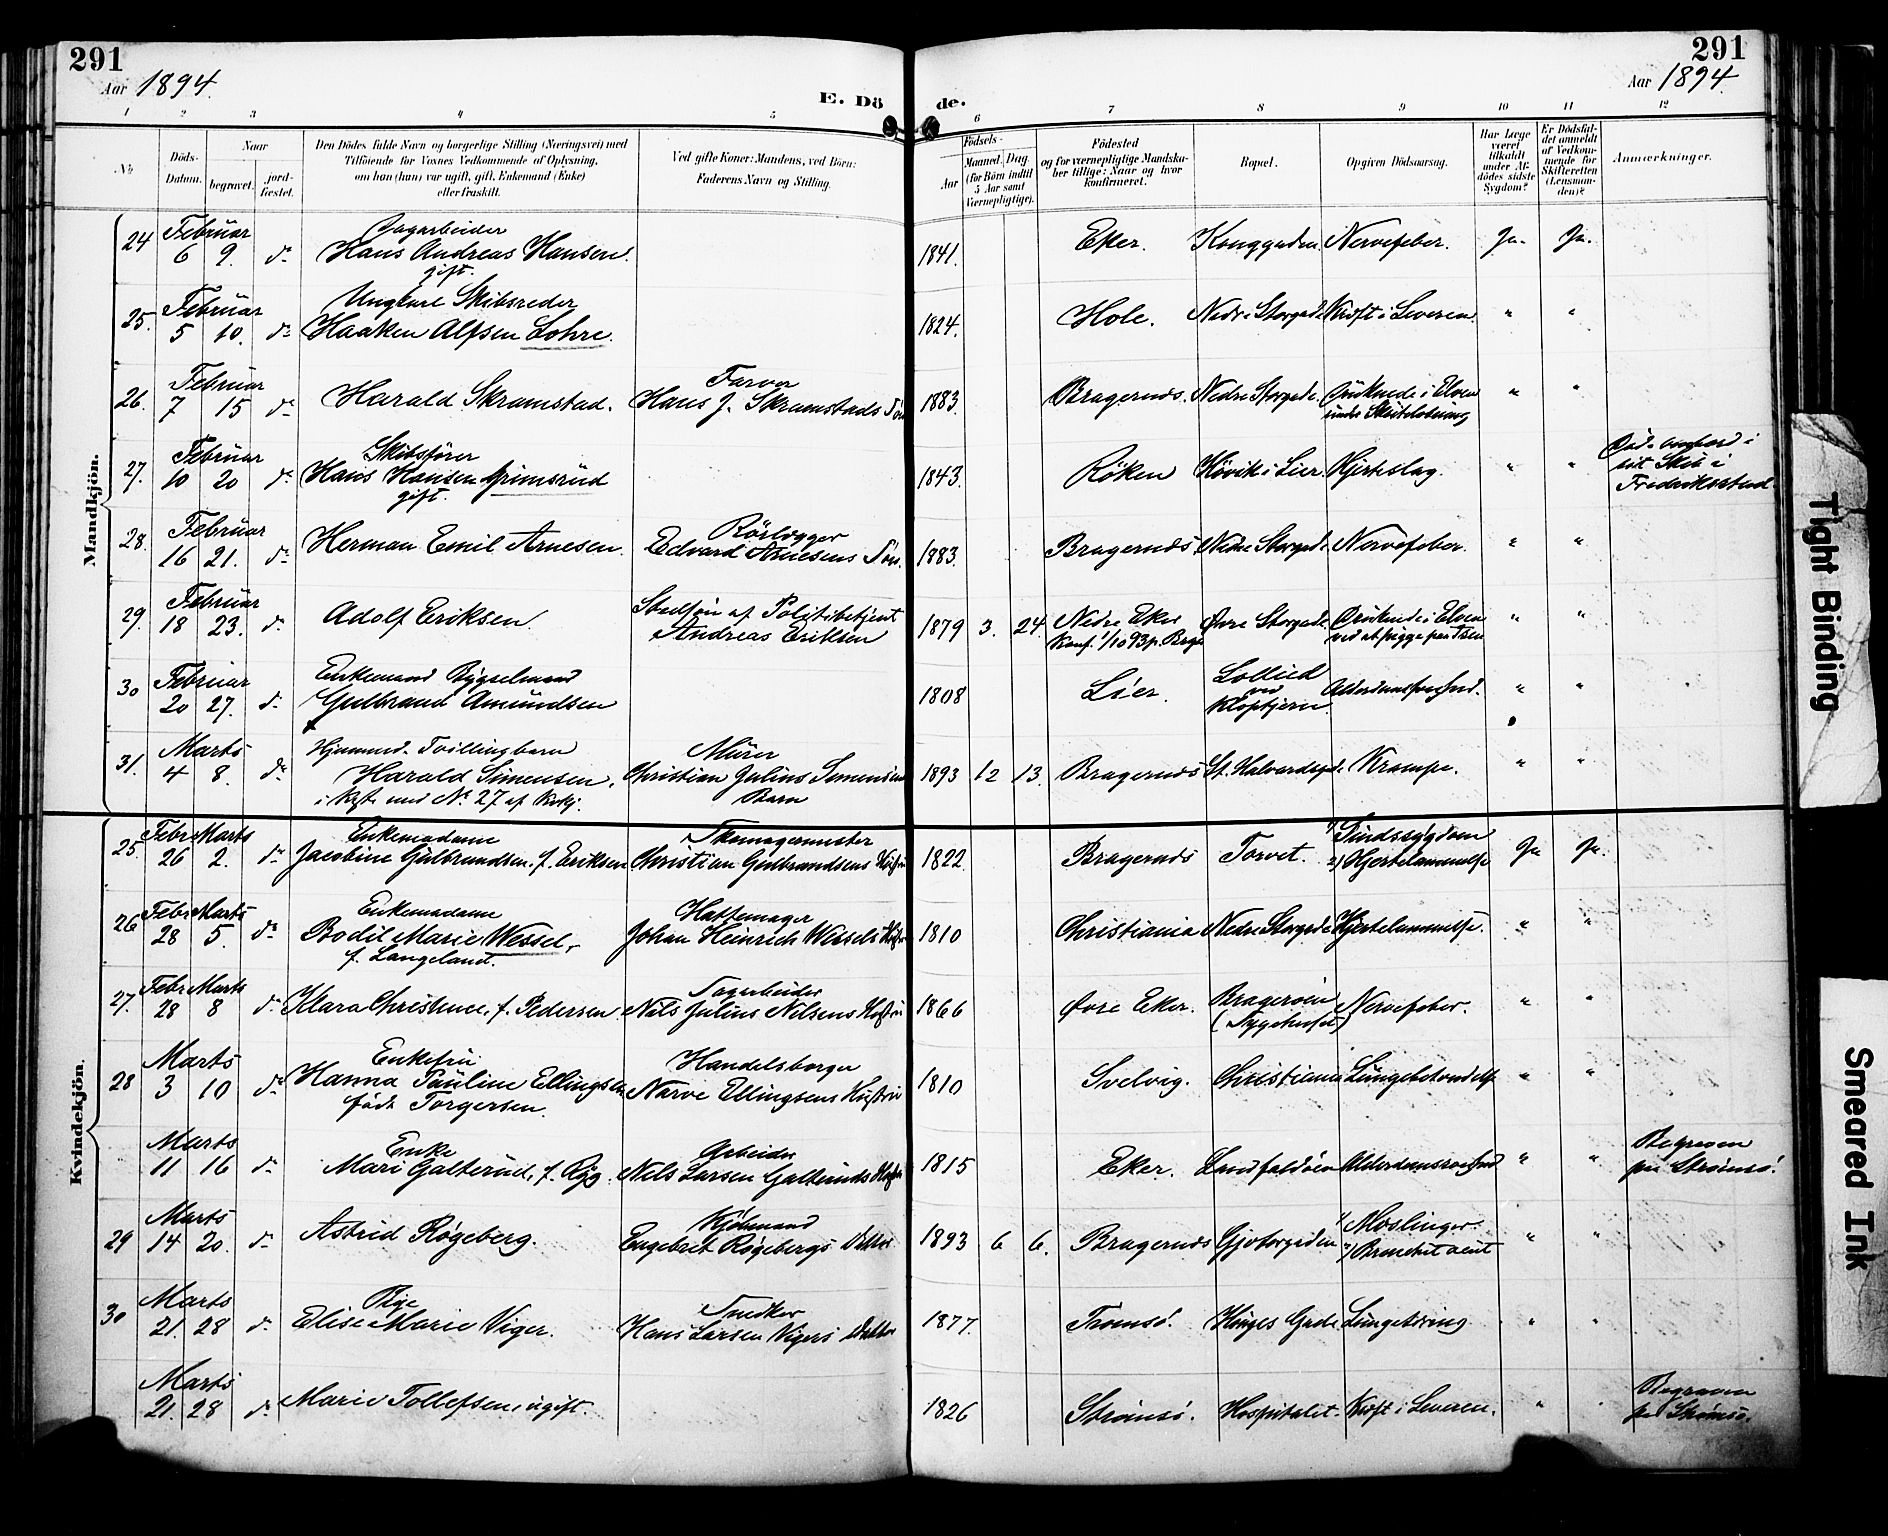 291
291
Aar 1894.
Aar 1894.
E. Dö
de.
1 2 3 4 5 6 7 8 9 10 11 12
Nr.
Döds-Datum.
Naar
begravet.
jord-fæstet.
Den Dödes fulde Navn og borgerlige Stilling (Næringsvei) med
Tilföiende for Voxnes Vedkommende af Oplysning,
om han (hun) var ugift, gift, Enkemand (Enke)
eller fraskilt.
Ved gifte Koner: Mandens, ved Börn:
Faderens Navn og Stilling.
Födsels-
Aar
Maaned. Dag.
(for Börn indtil
5 Aar samt
Værnepligtige).
Födested
og for værnepligtige Mandska-
ber tillige: Naar og hvor
konfirmeret.
Bopæl.
Opgiven Dödsaarsag.
Har Læge
været
tilkaldt
under Af-
dödes sidste
Sygdom?
Er Dödsfal-
det anmeldt
af Vedkom-
mende for
Skifteretten
(Lensman-
den)?
Anmærkninger.
Mandkjön.
24 Februar 6 9. do Hans Andreas Hansen gift. 1841. Eker. Konggaden Nervefeber. Ja. Ja.
25. Februar 5 10. do Ungkarl Skibsreder Haaken Alfsen Lohre. 1824. Hole. Nedre Storgade Kræft i Leveren. " "
26. Februar 7 15 do Harald Skramstad. Farver Hans J. Skramstads Søn 1883. Bragernæs. Nedre Storgade. Druknede i Elven under Skøiteløbning " "
27. Februar 10 20 do Skibsfører Hans Hansen Grimsrud gift. 1843. Røken Høvik i Lier Hjerteslag. " " Døde ombord i sit Skib i Fredriksstad.
28. Februar 16 21. do Herman Emil Arnesen. Rörlægger Edvard Arnesens Søn. 1883. Bragernæs Nedre Storgade Nervefeber. " "
29. Februar 18 23. do Adolf Eriksen. Stedsøn af Politibetjent Andreas Eriksen 1879 3. 24. Nedre Eker Konf. 1/10 93 p. Brag. Øvre Storgade Druknede i Elven ved at pigge paa Isen " "
30 Februar 20 27. do Enkemand Bygselmand Gulbrand Amundsen 1808 Lier. ved Kloptjern. Alderdomssvaghed. " "
31. Marts 4 8. do Hjemmed. Tvillingbarn Harald Simensen. Murer Christian Julius Simensens Barn 1893 12 13. Bragernæs St. Halvardsgd. Krampe. " "
Kvindekjön.
25. Febr 26 Marts 2. do Enkemadame Jacobine Gulbrandsen, f. Eriksen Skomagermester Christian Gulbrandsens Hustru 1822. Bragernæs Torvet. 1) Sindssygdom 2) Hjertelammelse Ja Ja.
26 Febr 28 Marts 5. do Enkemadame Bodil Marie Wessel, f. Langeland. Hattemager Johan Heinrich Wessels Hustru 1810 Christiania Nedre Storgade Hjertelammelse. " "
27. Febr 28 Marts 8 do Klara Christence, f. Pedersen. Nils Julius Nilsens Hustru 1866 Øvre Eker. Bragerøen (Sygehuset) Nervefeber. " "
28 Marts 3 10 do Enkefru Hanna Pauline Ellingsen født Torgersen. Handelsborger Narve Ellingsens Hustru 1810 Svelvig. Christiania Lungebetændelse " "
Marts 11 16 do Enke Mari Galterud, f. Ryg. Arbeider Nils Larsen Galteruds Hustru 1815 Eker. Landfaldøen Alderdomssvaghed " " Begraven paa Strømsö.
29 Marts 14 20. do Astrid Røgeberg. Kjøbmand Engebret Røgebergs Datter 1893 6 6. Bragernæs Gjetergaden 1) Mæslinger. 2) Bronchit acut " "
30 Marts 21. 28 do Pige Elise Marie Viger. Snedker Hans Larsen Vigers Datter 1877. Tromsö. Hauges Gade Lungetæring " "
Marts 21. 28 do Marie Tollefsen, ugift. 1826 Strømsö. Hospitalet. Kræft i Leveren. " " Begraven paa Strømsö.
Tight Binding
Smeared Ink